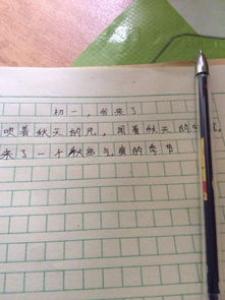 初一,我来了
吹着秋天的风,闻着秋天的
来了一个秋高气爽的季节